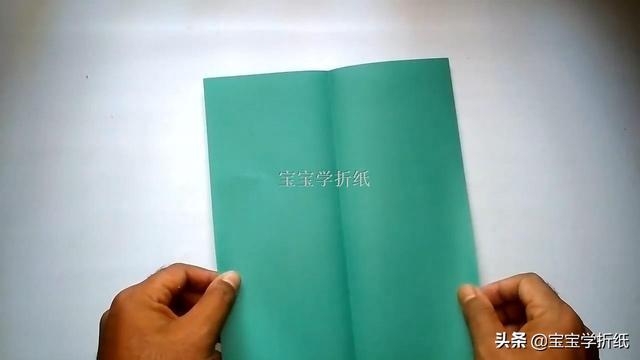 宝宝学折纸
头条 @宝宝学折纸